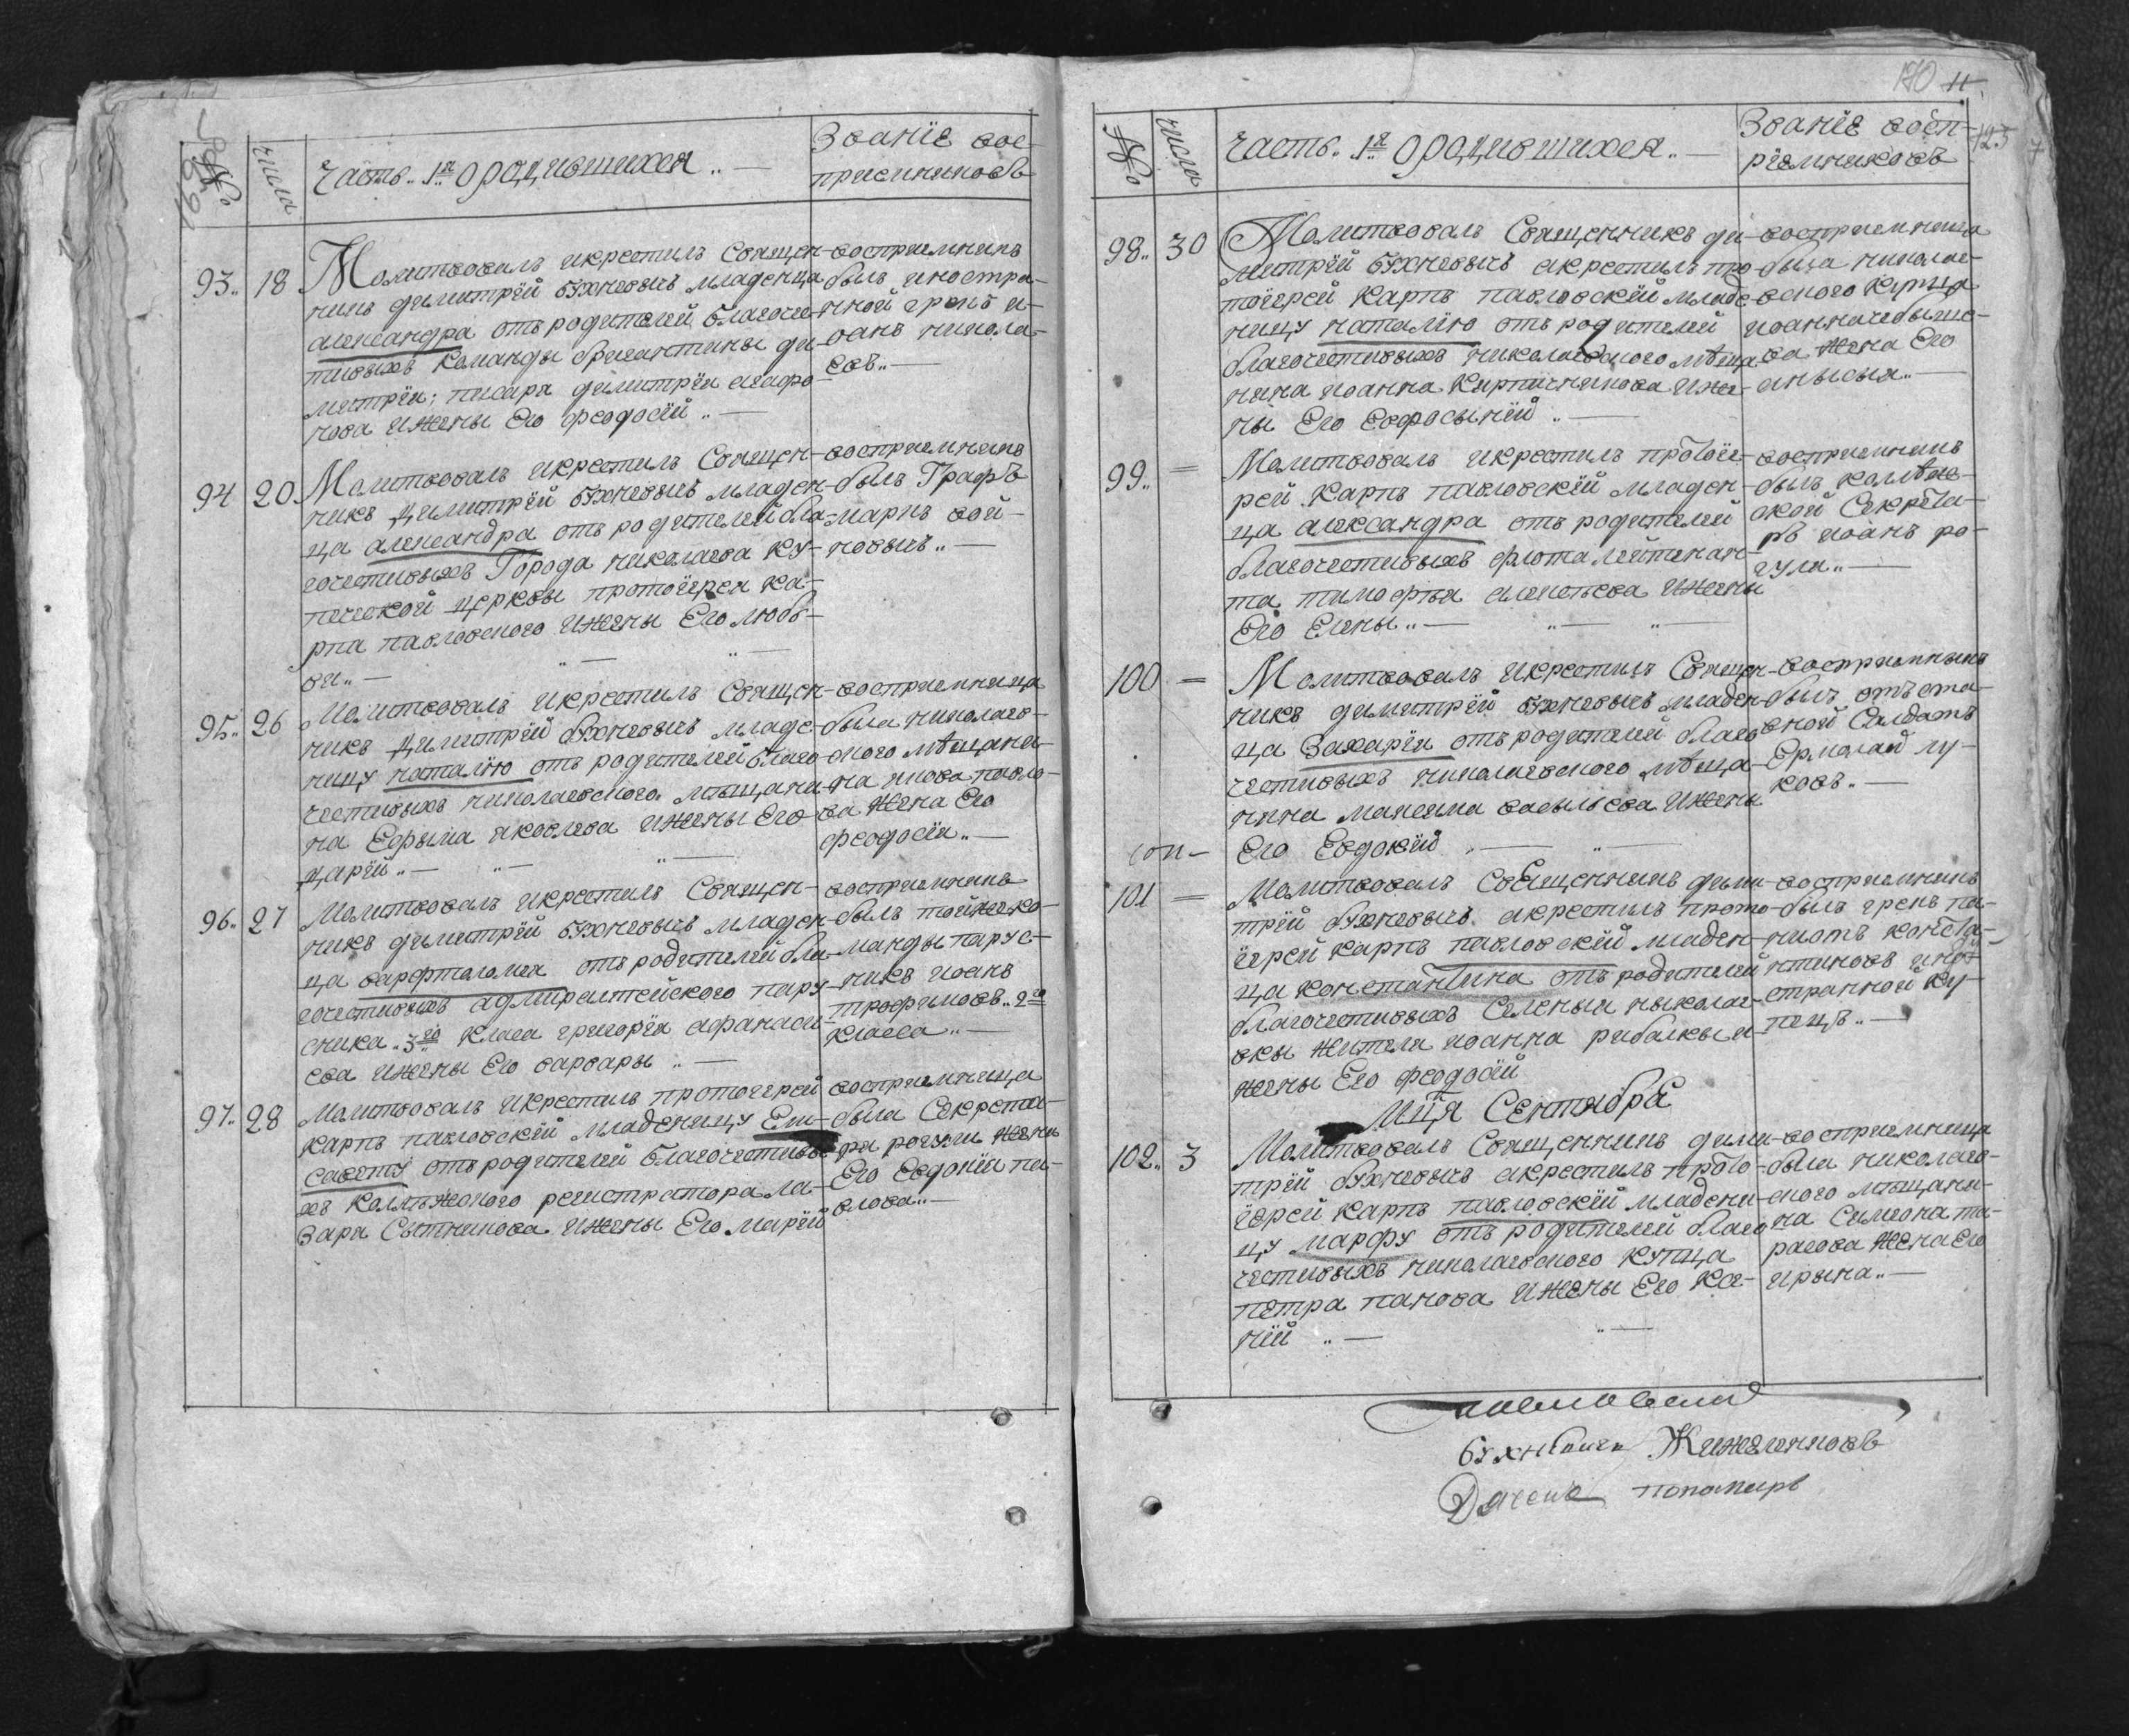 169
№
числа
Часть 1я о родившихся
Званїе вос-
приемниковъ
93 18 Молитвовалъ икрестилъ Священ-
никъ димитрїй бухневычъ младенца
александра отъ родителей благоче-
тивыхъ команды бригантины ди-
митрїи; писаря димитрїя агафо-
нова ижены Его феодосїй
восприемникъ
былъ иностра-
нной грекъ и-
оанъ никола-
евъ
94 20 Молитвовалъ икрестилъ Священ-
никъ димитрїй бухневычъ младен-
ца александра отъ родителей бла-
гочестивыхъ Города николаева ку-
печеской церквы протоїерея ка-
рпа павловского ижены Его любъ-
ви
восприемникъ
былъ Графъ
маркъ вой-
новычъ
95 26 Молитвовалъ икрестилъ Священ-
никъ димитрїй бухневычъ младе-
ницу наталїю отъ родителей благо-
честивыхъ николаевского мѣщани-
на Ефрыма яковлева ижены Его
дарїй
восприемница
была николаев-
ского мѣщани-
на якова павло-
ва жена Его
феодосїя
96 27 Молитвовалъ икрестилъ Священ-
никъ димитрїй бухневычъ младен-
ца варфтоломея отъ родителей бла-
гочестивыхъ адмиралтейского пару-
сника 3го класа григорїя афанаси-
ева ижены Его варвары
восприемникъ
былъ тойже ко-
манды парус-
никъ иоанъ
трофимовъ 2го
класса
97 28 Молитвовалъ икрестилъ протоиерей
карпъ павловскїй младеницу Ели-
савету отъ родителей благочестивы-
хъ колѣжского регистратора ла-
заря Сытникова ижены Его марїй
восприемница
была Секрета-
ря рогули жена
Его Евдокїя па-
влова
170 11
125
№
числа
Часть 1я о родившихся
Званїе восп-
рїемниковъ
98 30 Молитвовалъ Священникъ ди-
митрїй бухневычъ акрестилъ про-
тоїерей карпъ павловскїй младе-
ницу наталїю отъ родителей
благочестивыхъ николаевского мѣща-
нина иоанна Кирпичникова ижe-
ны Его Евфросынїй
восприемница
была николае-
вского купца
иоанна
ва жена Его
анысыя
99 = Молитвовалъ икрестилъ протоїе-
рей карпъ павловскїй младен-
ца александра отъ родителей
благочестивыхъ флота лейтенан-
та тимофея ижены
Его Елены
восприемникъ
былъ колѣж-
ской Секрета-
рь иоанъ ро-
гуля
100 = Молитвовалъ икрестилъ Священ-
никъ димитрїй бухневычъ младен-
ца Захарїя отъ родителей благо
честивыхъ николаевского мѣща-
нина максима васыльева ижены
Его Евдокїй
восприемникъ
былъ отъста-
вной Салдатъ
Ермолай лу-
ковъ
101 = Молитвовалъ Священникъ дими-
трїй бухневычъ акрестилъ прото-
їерей карпъ павловскїй младен-
ца константина отъ родителей
благочестивыхъ Селеныя ныколае-
вкы жителя иоанна рибалкы и
жены Его феодосїй
восприемникъ
былъ грекъ па-
ниотъ конста-
нтиновъ ино-
странной ку-
пецъ
Мця Сентября
102 3 Молитвовалъ Священникъ дими-
трїй бухневычъ акрестилъ прото-
їерей карпъ павловскїй младени-
цу марфу отъ родителей благо
честивыхъ николаевского купца
петра панова ижены Его Ксе-
нїй
восприемница
была николаев-
ского мѣщани-
на Симеона та-
расова жена Его
ирына
пономарь